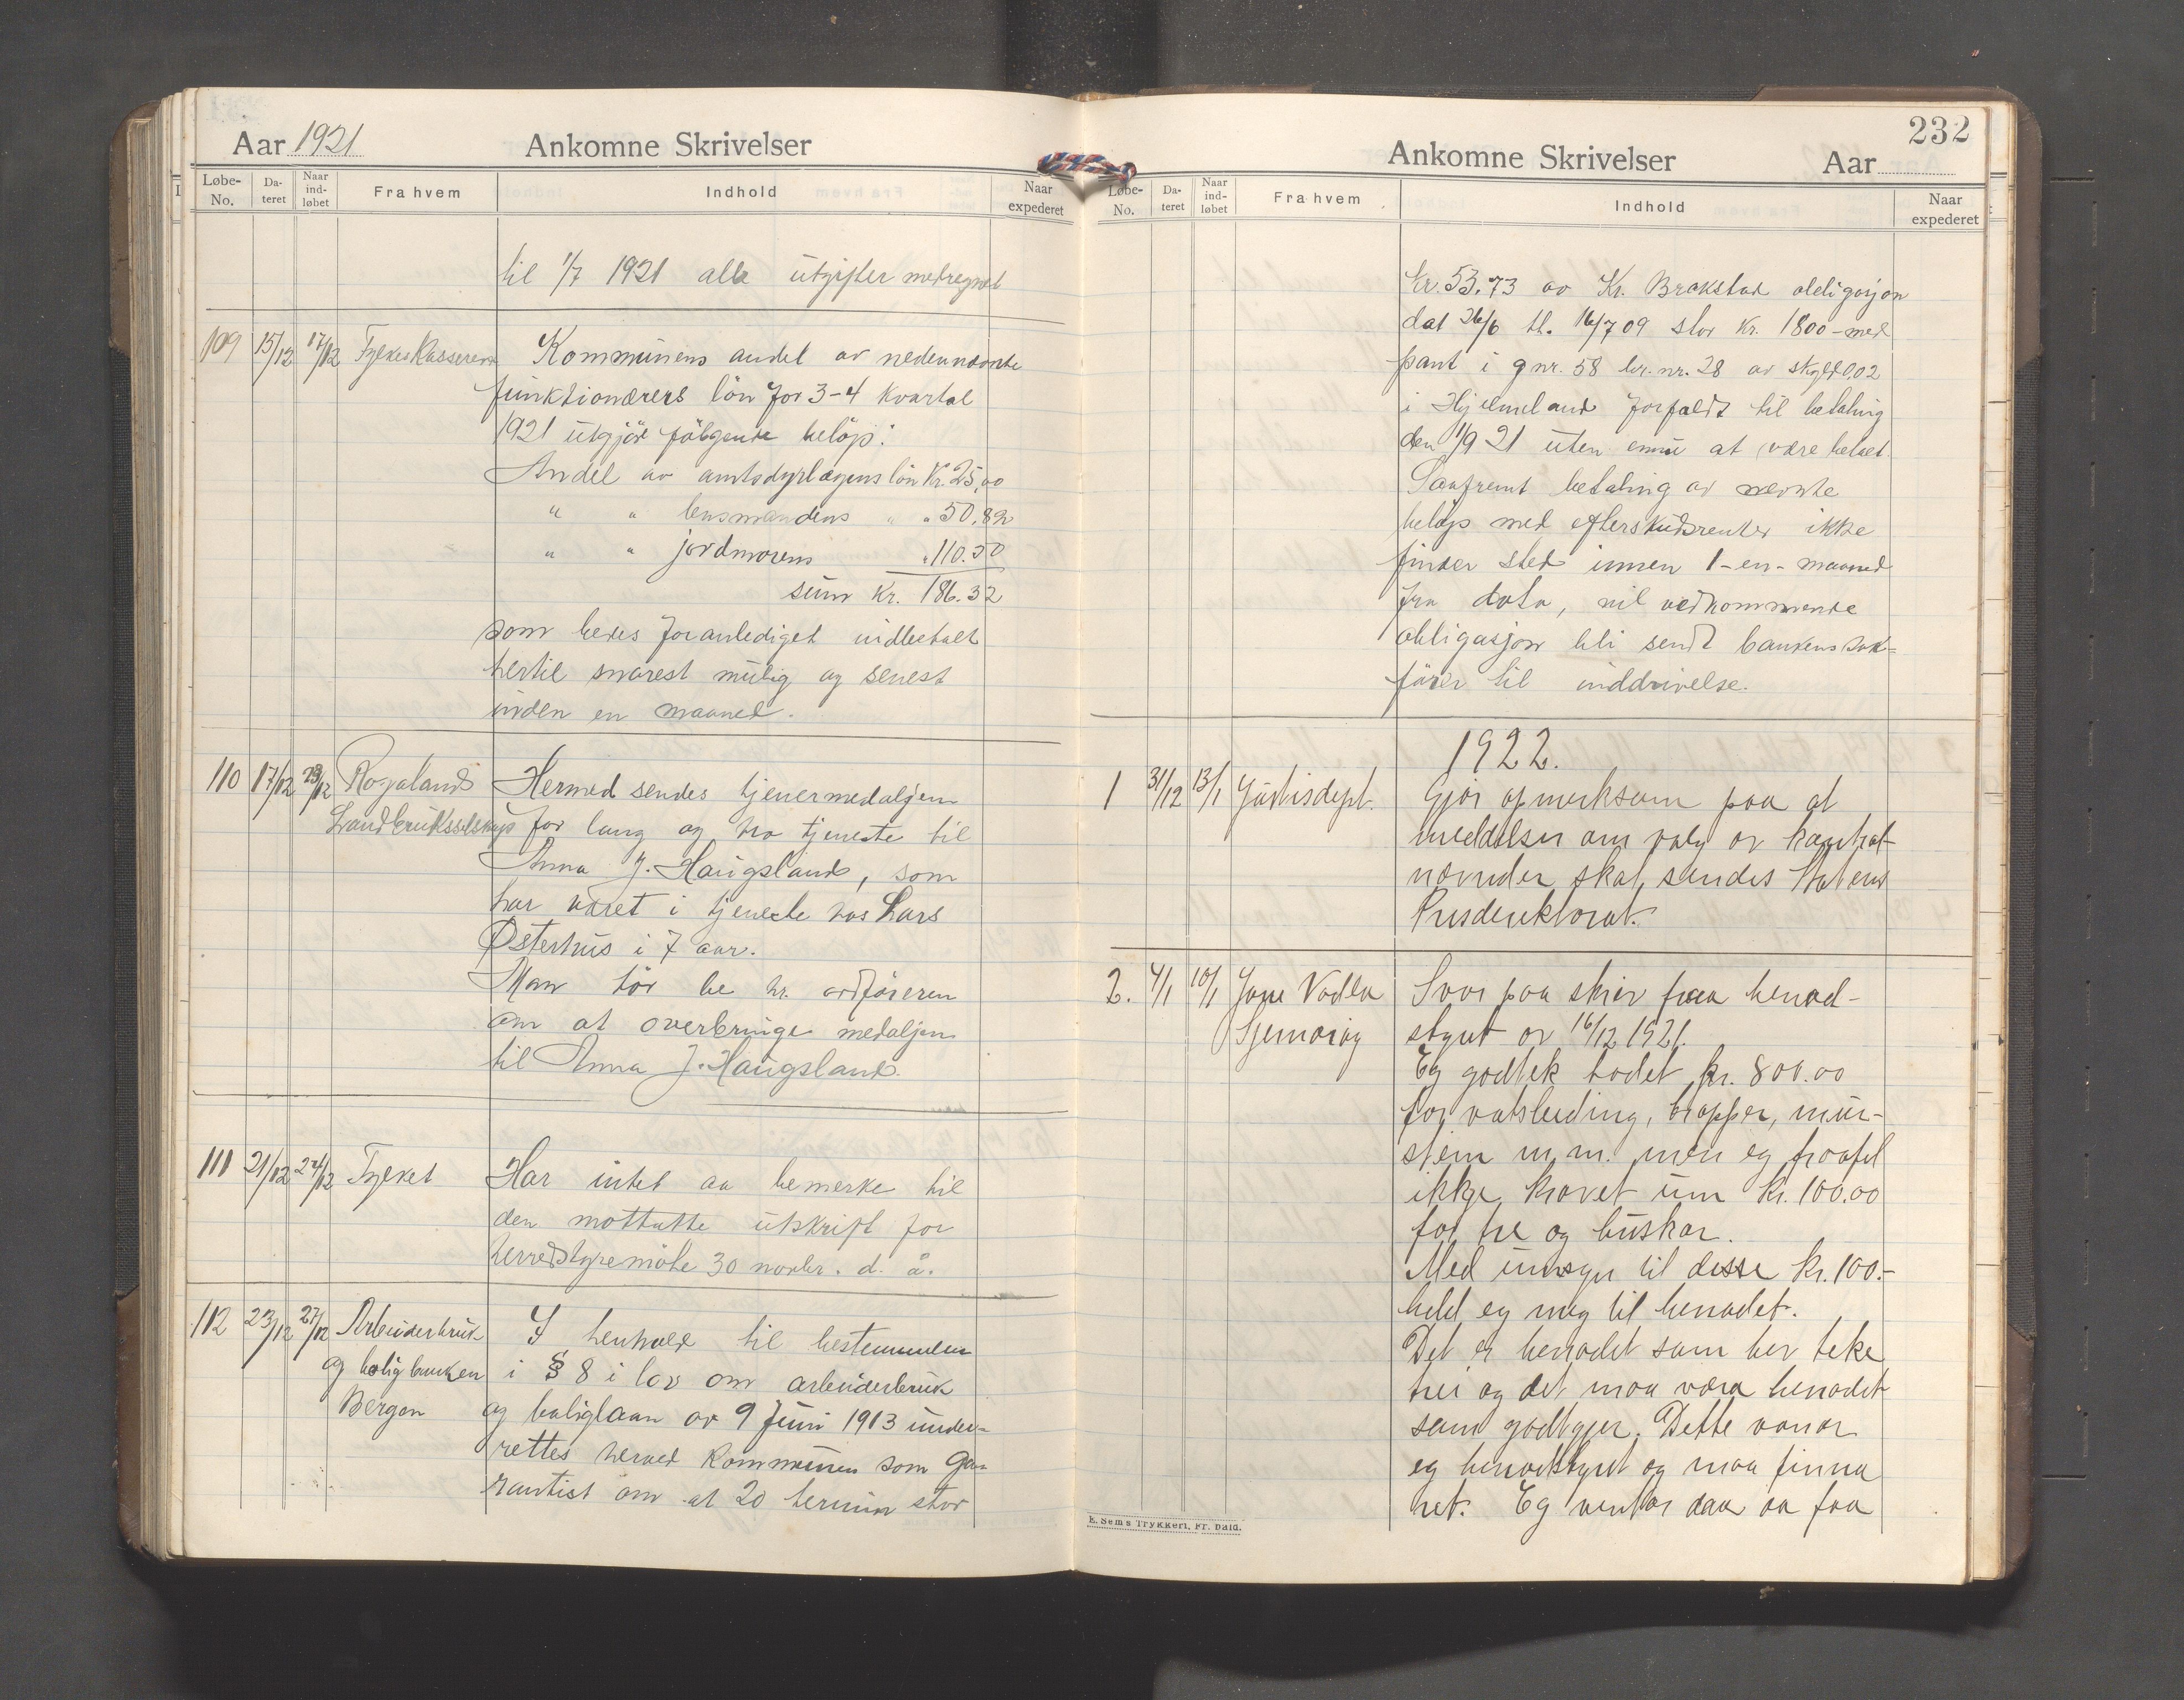 Aar 1921
Ankomne Skrivelser
Løbe-No. Da-teret Naar ind-løbet Fra hvem Indhold Naar expederet
til 1/7 1921 alle utgifter medregnet
109 15/12 17/12 Fylkeskassereren Kommunens andel av nedennævnte
funktionærers lön for 3-4 kvartal
1921 utgjör fölgende belöp:
Andel av amtsdyrlægens lön Kr. 25,00
" " lensmandens " " 50,82
" " jordmorens " 110.50
sum Kr. 186.32
som bedes foranlediget indbetalt
hertil snarest mulig og senest
inden en maaned.
110 17/12 23/12 Rogaland Hermed sendes tjenermedaljen
Landbruksselskap for lang og tro tjeneste til
Anna J. Haugsland, som
har været i tjeneste hos Lars
Østerhus i 7 aar.
Man tör be hr. ordföreren
om at overbringe medaljen
til Anna J. Haugsland.
111 21/12 24/12 Fylket Har intet aa bemerke til
den mottatte utskrift for
herredstyremöte 30 novbr. d. å.
112 23/12 27/12 Arbeiderbruk I henhold til bestemmelsen
og boligbanken i § 8 i lov om arbeiderbruk
Bergen og boliglaan av 9 Juni 1913 under-
rettes herved Kommunen som ga-
rantist om at 20 termin stor
232
Ankomne Skrivelser
Aar
Løbe-No. Da-teret Naar ind-løbet Fra hvem Indhold Naar expederet
kr. 53.73 av Kr. Brakstad obligasjon
dat 26/6 tl. 16/7 09 stor kr. 1800 - med
pant i gnr. 58 br. nr. 28 av skyld 0,02
i Hjelmeland forfaldt til betaling
den 1/9 21 uten ennu at være betalt.
Saafremt betaling av nevnte
belöp med efterskudsrenter ikke
finder sted innen 1-en- maaned
fra dato, vil vedkommende
obligasjon bli sendt bankens sak-
förer til inddrivelse.
1922.
1 31/12 13/1 Justisdept. Gjör opmerksom paa at
meddelser om valg av kontrol-
nævnder skal sendes Statens
Prisdirektorat.
2. 4/1 10/1 Jone Vadla Svar paa skriv fraa herad-
Sjernaröy styret av 16/12 1921.
Eg godtek bodet kr. 800.00
for vatsleiding, trapper, mur-
stein m.m. men eg fraafel
ikkje kravet um kr. 100.00
for tre og buskar.
Med umsyn til desse kr. 100.-
held eg meg til heradet.
Det er heradet som her teke
trei og det maa væra heradet
som godtgjer. Dette vonar
eg heradstyret og maa finna
ret. Eg ventar daa aa faa
E. Sems Trykkeri, Fr. hald.